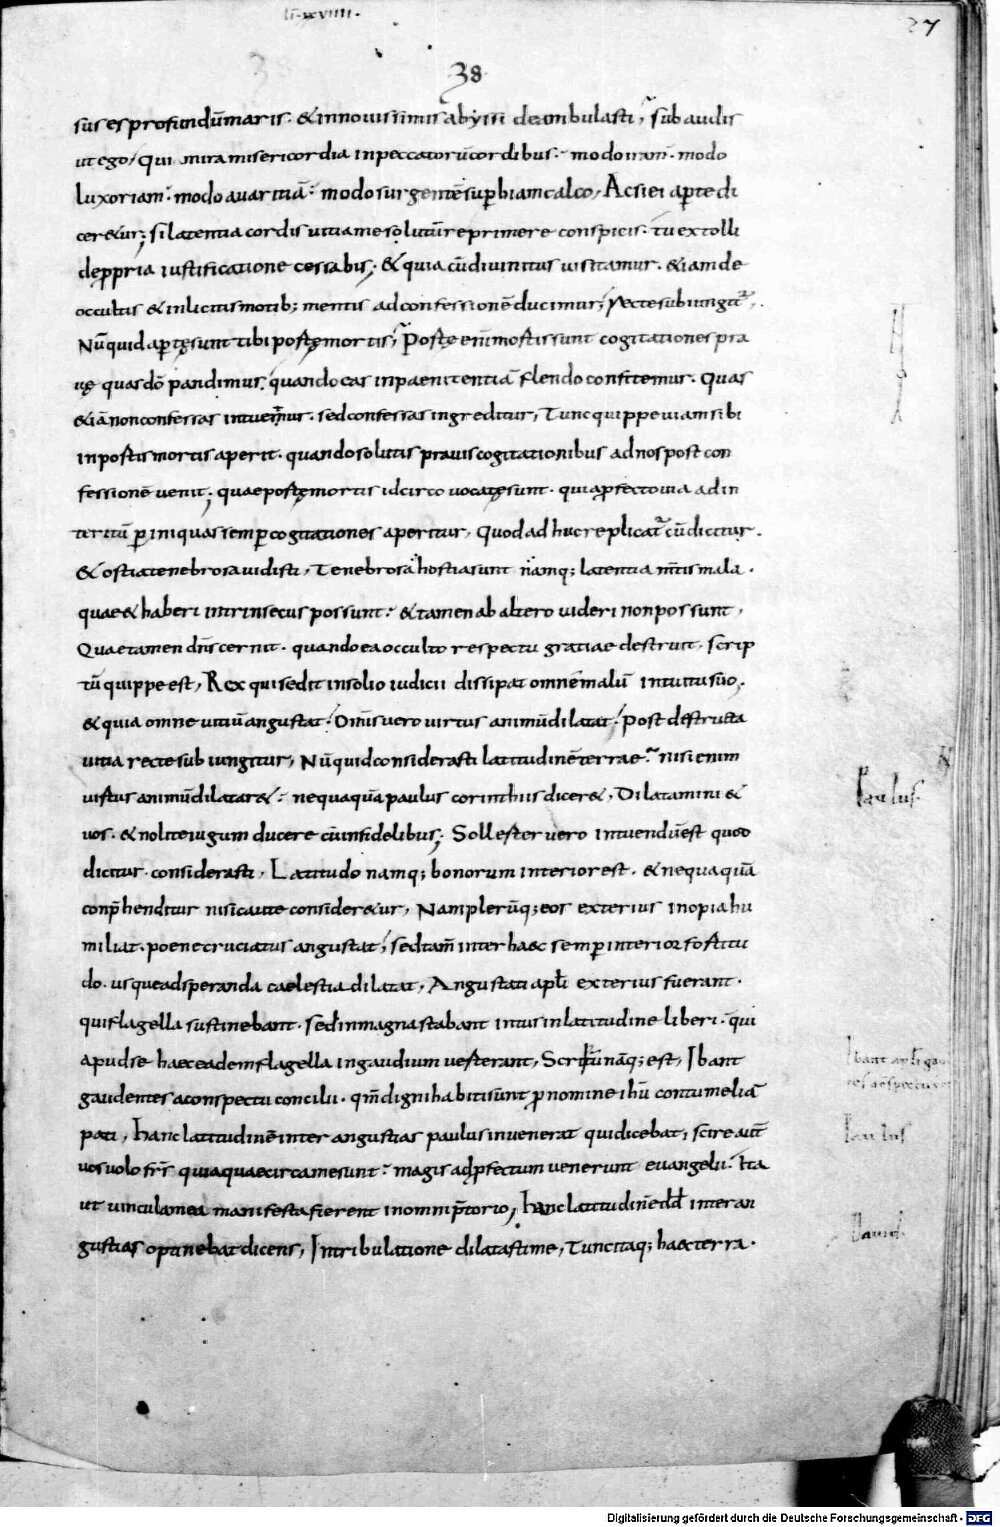 li·xviiii·
27
38
sus es profundū maris· & in novissimis abyssi deambulasti, subaudis
ut ego, Qui mira misericordia in peccatorū cordibus· modo iram· modo
luxoriam· modo avaritiā· modo surgentē supbiam calco, Ac si ei aperte di
cer&ur; si latentia cordis vitia me solutū reprimere conspicis· tu extolli
de ppria iustificatione cessabis; & quia cū divinitus visitamur· &iam de
occultis & inlicitis motib; mentis ad confessionē ducimur, recte subiungit̄,
Nūquid aptę sunt tibi portę mortis, Portę enim mortis sunt cogitationes pra
vę quas dō pandimus, quando eas in paenitentiā flendo confitemur· Quas
&iā non confessas intuemur· sed confessas ingreditur, Tunc quippe viam sibi
in portis mortis aperit· quando solutis pravis cogitationibus ad nos post con
fessionē venit; quae portę mortis idcirco vocatę sunt· quia pfecto via ad in
teritū p iniquas semp cogitationes aperitur, Quod adhuc replicat̄ cū dicitur·
& ostia tenebrosa vidisti, Tenebrosa hostia sunt namq; latentia mtis mala·
quae & haberi intrinsecus possunt· & tamen ab altero videri non possunt,
Quae tamen dn̄s cernit· quando ea occulto respectu gratiae destruit, scrip
tū quippe est, Rex qui sedit in solio iudicii dissipat omne malū intuitu suo·
& quia omne vitiū angustat· Omis vero virtus animū dilatat· post destructa
vitia recte subiungitur, Nūquid considerasti latitudinē terrae· nisi enim
virtus animū dilatar&· nequaquā paulus corinthiis dicer&, Dilatamini &
vos· & nolite iugum ducere cū infidelibus; Sollester vero intuendū est quod
dicitur· considerasti, Latitudo namq; bonorum interior est· & nequaquā
conphenditur nisi caute consider&ur, Nam plerūq; eos exterius inopia hu
miliat· poene cruciatus angustat, sed tam̄ inter haec semp interior fortitu
do· usque ad speranda caelestia dilatat, Angustati apl̄i exterius fuerant·
qui flagella sustinebant· sed in magna stabant intus in latitudine liberi· qui
apud se haec eadem flagella in gaudium verterant, Scriptū nāq; est, Ibant
gaudentes a conspectu concilii· qm̄ digni habiti sunt p nomine ihū contumeliā
pati, hanc latitudinē inter angustias paulus invenerat qui dicebat, scire autē
vos volo frs̄ quia quae circa me sunt· magis ad pfectum venerunt evangelii· Ita
ut vincula mea manifesta fierent in omni ptorio, hanc latitudinē dd̄ inter an
gustias optinebat dicens, In tribulatione dilatasti me, Tunc itaq; haec terra·
Paulus·
Paulus
David·
Digitalisierung gefördert durch die Deutsche Forschungsgemeinschaft - DFG